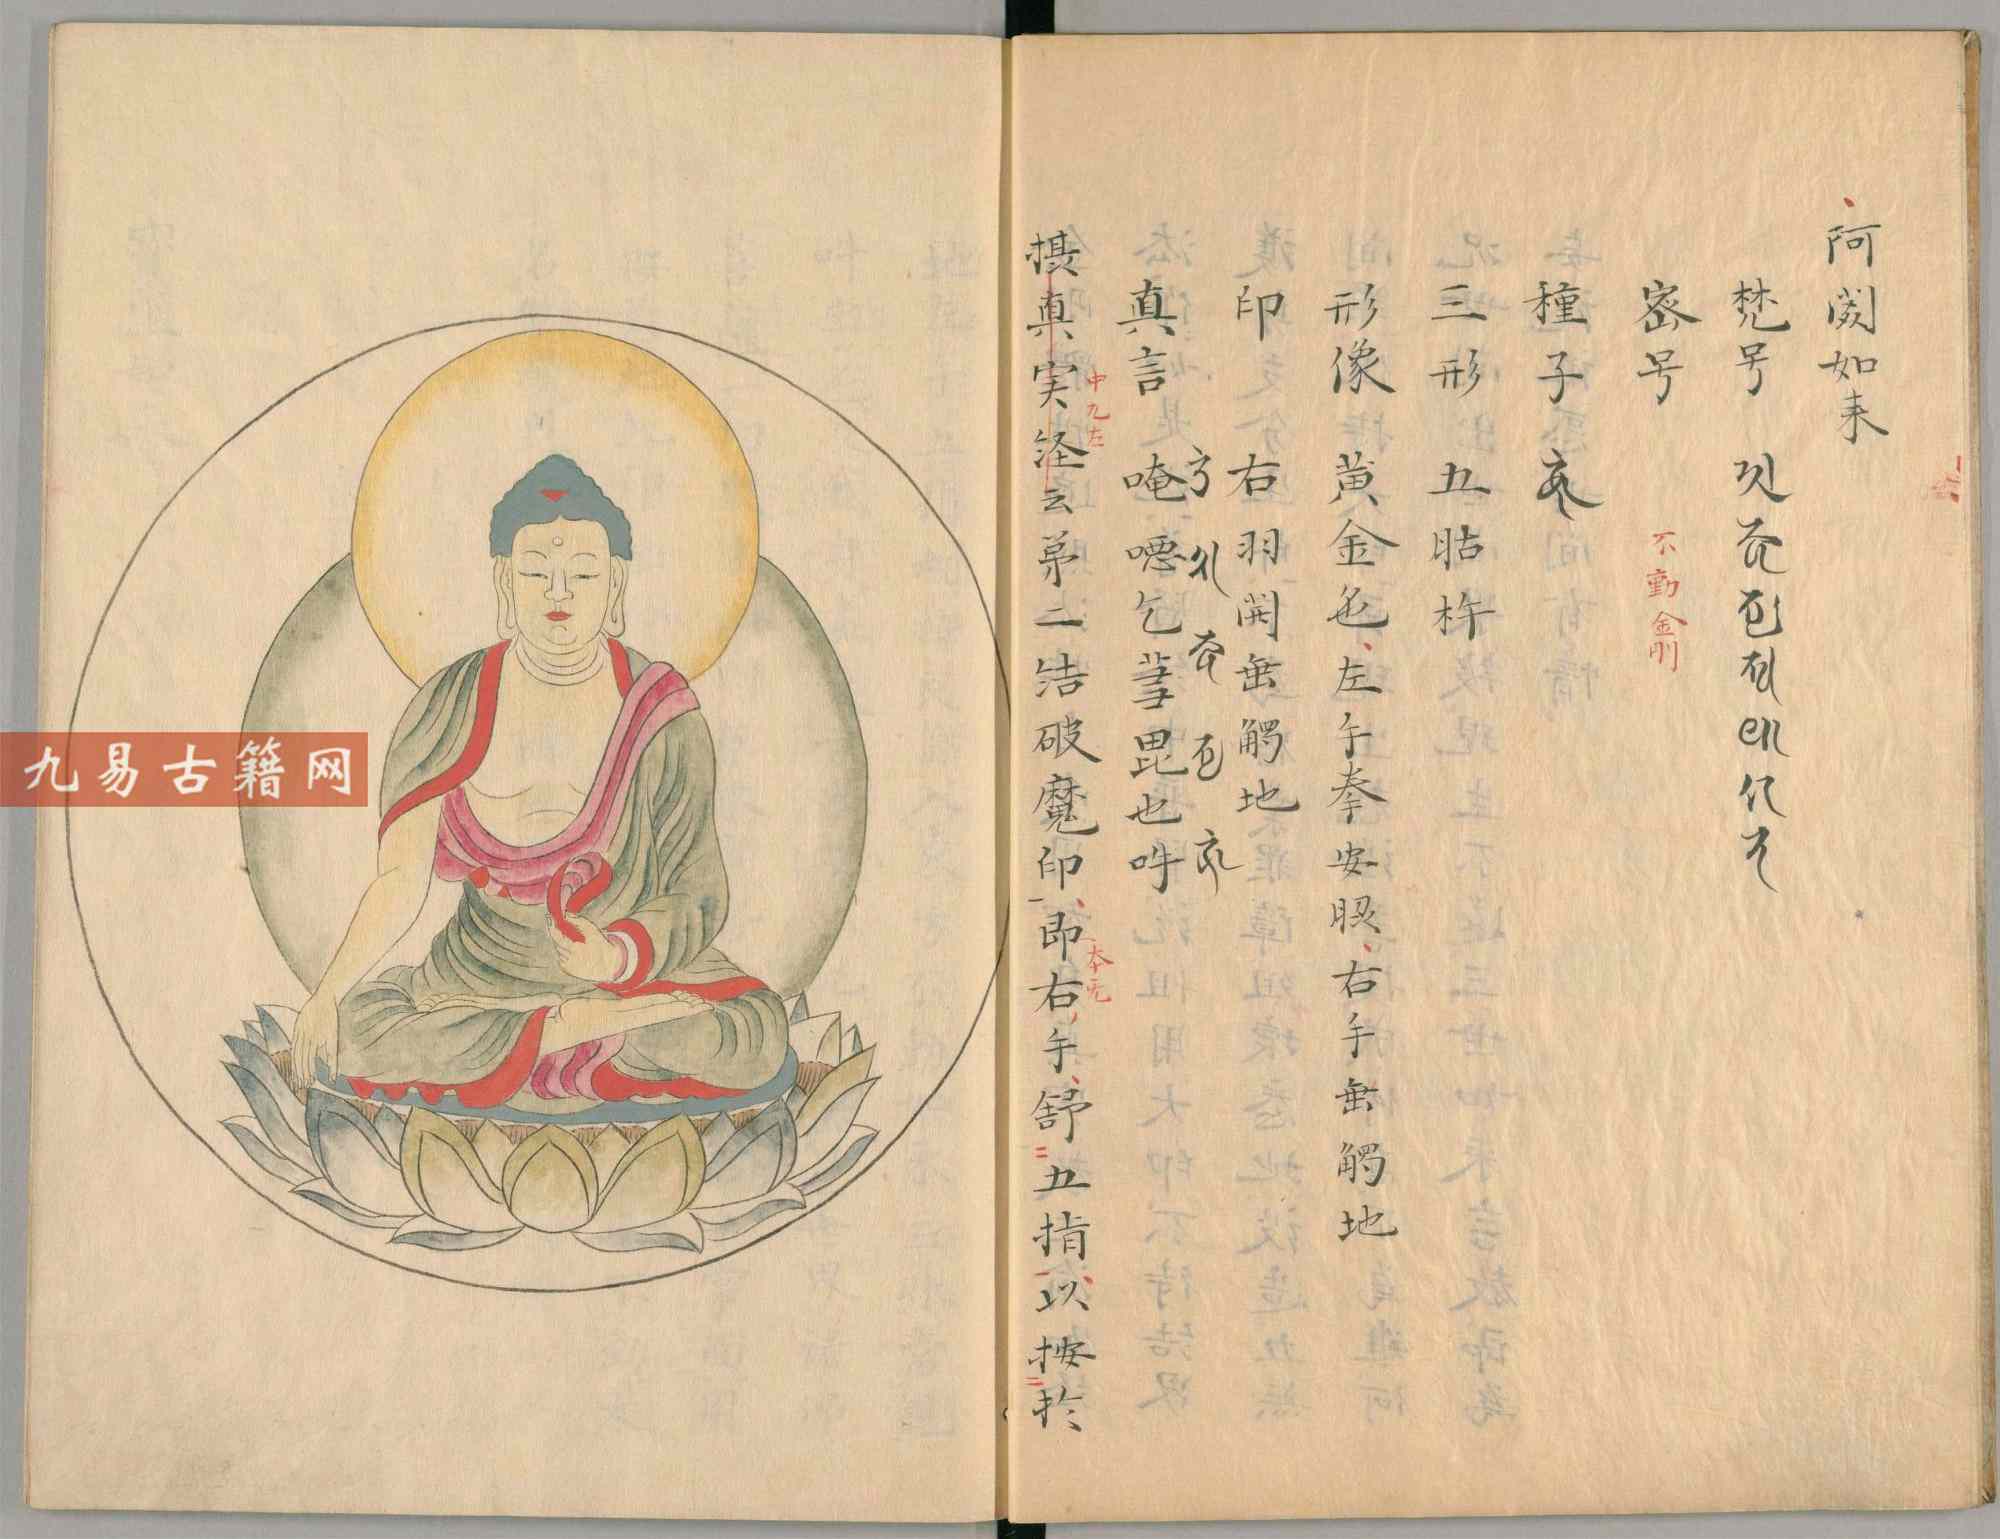 阿閦如来
梵号
密号 不動金剛
種子
三形 五𦙶杵
形像 黄金色、左手拳安臍、右手垂觸地
印 右羽開垂觸地
真言 唵噁乞蒭毘也吽
摂真実経云第二结破魔印、即右手舒五指以按於
中九左
本无
九易古籍网